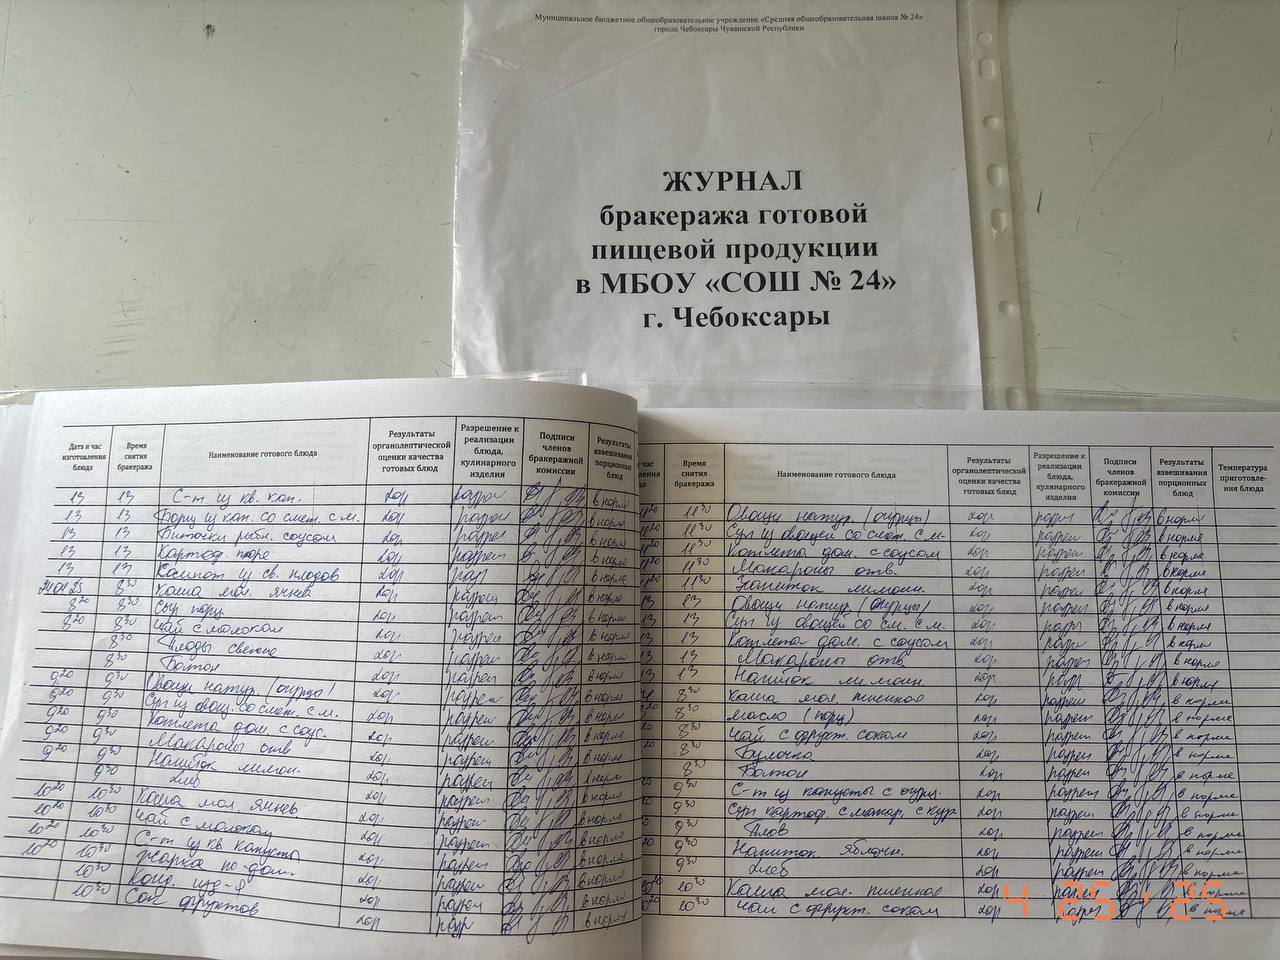 Муниципальное бюджетное общеобразовательное учреждение «Средняя общеобразовательная школа № 24»
города Чебоксары Чувашской Республики
ЖУРНАЛ
бракеража готовой
пищевой продукции
в МБОУ «СОШ № 24»
г. Чебоксары
Дата и час изготовления блюда Время снятия бракеража Наименование готового блюда Результаты органолептической оценки качества готовых блюд Разрешение к реализации блюда, кулинарного изделия Подписи членов бракеражной комиссии Результаты взвешивания порционных блюд
13 13 С-т из кв. кап. хор разреш в норме
13 13 Борщ из кап. со смет. с м. хор разреш в норме
13 13 Биточки рыбн. соусом хор разреш в норме
13 13 Картоф. пюре хор разреш в норме
13 13 Компот из св. плодов хор разр в норме
8 30 Каша мол. ячнев хор разреш в норме
8 20 8 30 Сыр порц хор разреш в норме
8 20 8 30 Чай с молоком хор разреш в норме
8 30 Плоды свежие хор разреш в норме
8 30 Батон хор разреш в норме
9 20 9 30 Овощи натур. (огурцы) хор разреш в норме
9 20 9 30 Суп из овощ. со смет. с м. хор разреш в норме
9 20 9 30 Котлета дом. с соус. хор разреш в норме
9 20 9 30 Макароны отв хор разреш в норме
9 20 9 30 Напиток лимон. хор разреш в норме
9 30 Хлеб хор разреш в норме
10 20 10 30 Каша мол. ячнев хор разреш в норме
10 20 10 30 Чай с молоком хор разреш в норме
10 20 10 30 С-т из кв капусты хор разреш в норме
10 20 10 30 Жарка по-дом. хор разреш в норме
10 30 Конд. изд-я хор разреш в норме
10 30 Сок фруктов хор разр в норме
час изготовления блюда Время снятия бракеража Наименование готового блюда Результаты органолептической оценки качества готовых блюд Разрешение к реализации блюда, кулинарного изделия Подписи членов бракеражной комиссии Результаты взвешивания порционных блюд Температура приготовления блюда
11 20 11 30 Овощи натур. (огурцы) хор разреш в норме
11 20 11 30 Суп из овощей со смет. с м. хор разреш в норме
11 20 11 30 Котлета дом. с соусом хор разреш в норме
11 20 11 30 Макароны отв. хор разреш в норме
11 20 11 30 Напиток лимонн. хор разреш в норме
13 13 Овощи натур. (огурцы) хор разреш в норме
13 13 Суп из овощей со см. с м. хор разреш в норме
13 13 Котлета дом. с соусом хор разреш в норме
13 13 Макароны отв хор разреш в норме
13 13 Напиток лимонн. хор разр в норме
8 30 Каша мол. пшенное хор разреш в норме
8 30 масло (порц) хор разреш в норме
8 30 Чай с фрукт. соком хор разреш в норме
8 30 Булочка хор разреш в норме
8 30 Батон хор разреш в норме
9 30 С-т из капусты с огурц. хор разреш в норме
9 30 Суп картоф. с макар. с кур хор разреш в норме
9 30 Плов хор разреш в норме
9 30 Напиток яблочн. хор разреш в норме
9 30 Хлеб хор разреш в норме
10 20 10 30 Каша мол. пшенное хор разреш в норме
10 30 Чай с фрукт. соком хор разреш в норме
4 25 '25